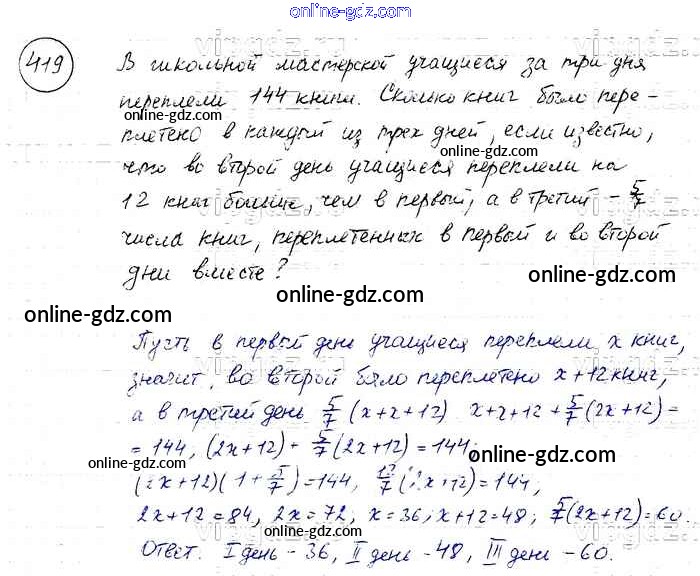 online-gdz.com
419
В школьной мастерской учащиеся за три дня
переплели 144 книги. Сколько книг было пере-
плетено в каждый из трех дней, если известно,
что во второй день учащиеся переплели на
12 книг больше, чем в первый, а в третий - 5/7
числа книг, переплетенных в первый и во второй
дни вместе?
online-gdz.com
Пусть в первый день учащиеся переплели x книг,
значит, во второй было переплетено x+12 книг,
а в третий день 5/7 (x+x+12) x+x+12+5/7(2x+12)=
=144, (2x+12)+ 5/7(2x+12)=144;
(2x+12)(1+5/7)=144, 12/7(2x+12)=144;
2x+12=84, 2x=72, x=36; x+12=48; 5/7(2x+12)=60.
Ответ. I день - 36, II день - 48, III день - 60.